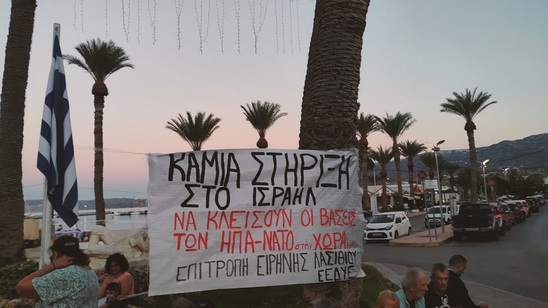 ΚΑΜΙΑ ΣΤΗΡΙΞΗ
ΣΤΟ ΙΣΡΑΗΛ
ΝΑ ΚΛΕΙΣΟΥΝ ΟΙ ΒΑΣΕΙΣ
ΤΩΝ ΗΠΑ-ΝΑΤΟ στην ΧΩΡΑ μας
ΕΠΙΤΡΟΠΗ ΕΙΡΗΝΗΣ ΛΑΣΙΘΙΟΥ
ΕΕΔΥΕ